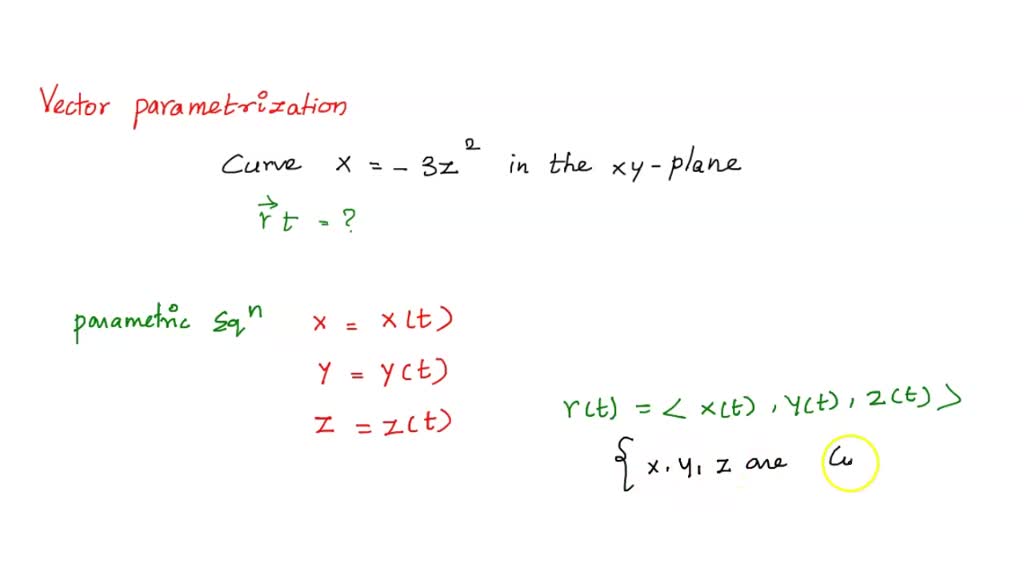 Vector parametrization
Curve x = - 3z² in the xy-plane
r⃗ t = ?
parametric Eqⁿ x = x(t)
y = y(t)
z = z(t)
r(t) = < x(t), y(t), z(t) >
{ x, y, z are